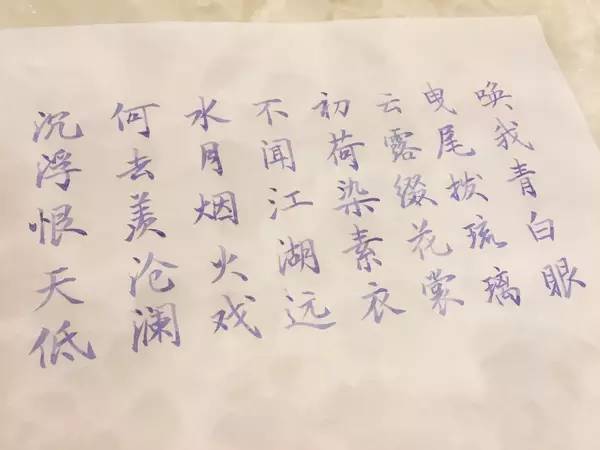 唤我青白眼
曳尾拔琉璃
云露缀花裳
初荷染素衣
不闻江湖远
水月烟火戏
何去羡沧澜
沉浮恨天低